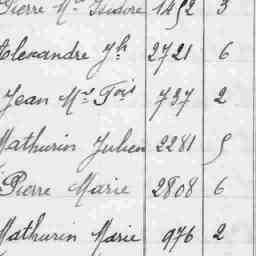 Pierre Mie Isidore 1452 3
Alexandre Jh 2721 6
Jean Mie Fois 737 2
Mathurin Julien 2281 5
Pierre Marie 2808 6
Mathurin Marie 976 2